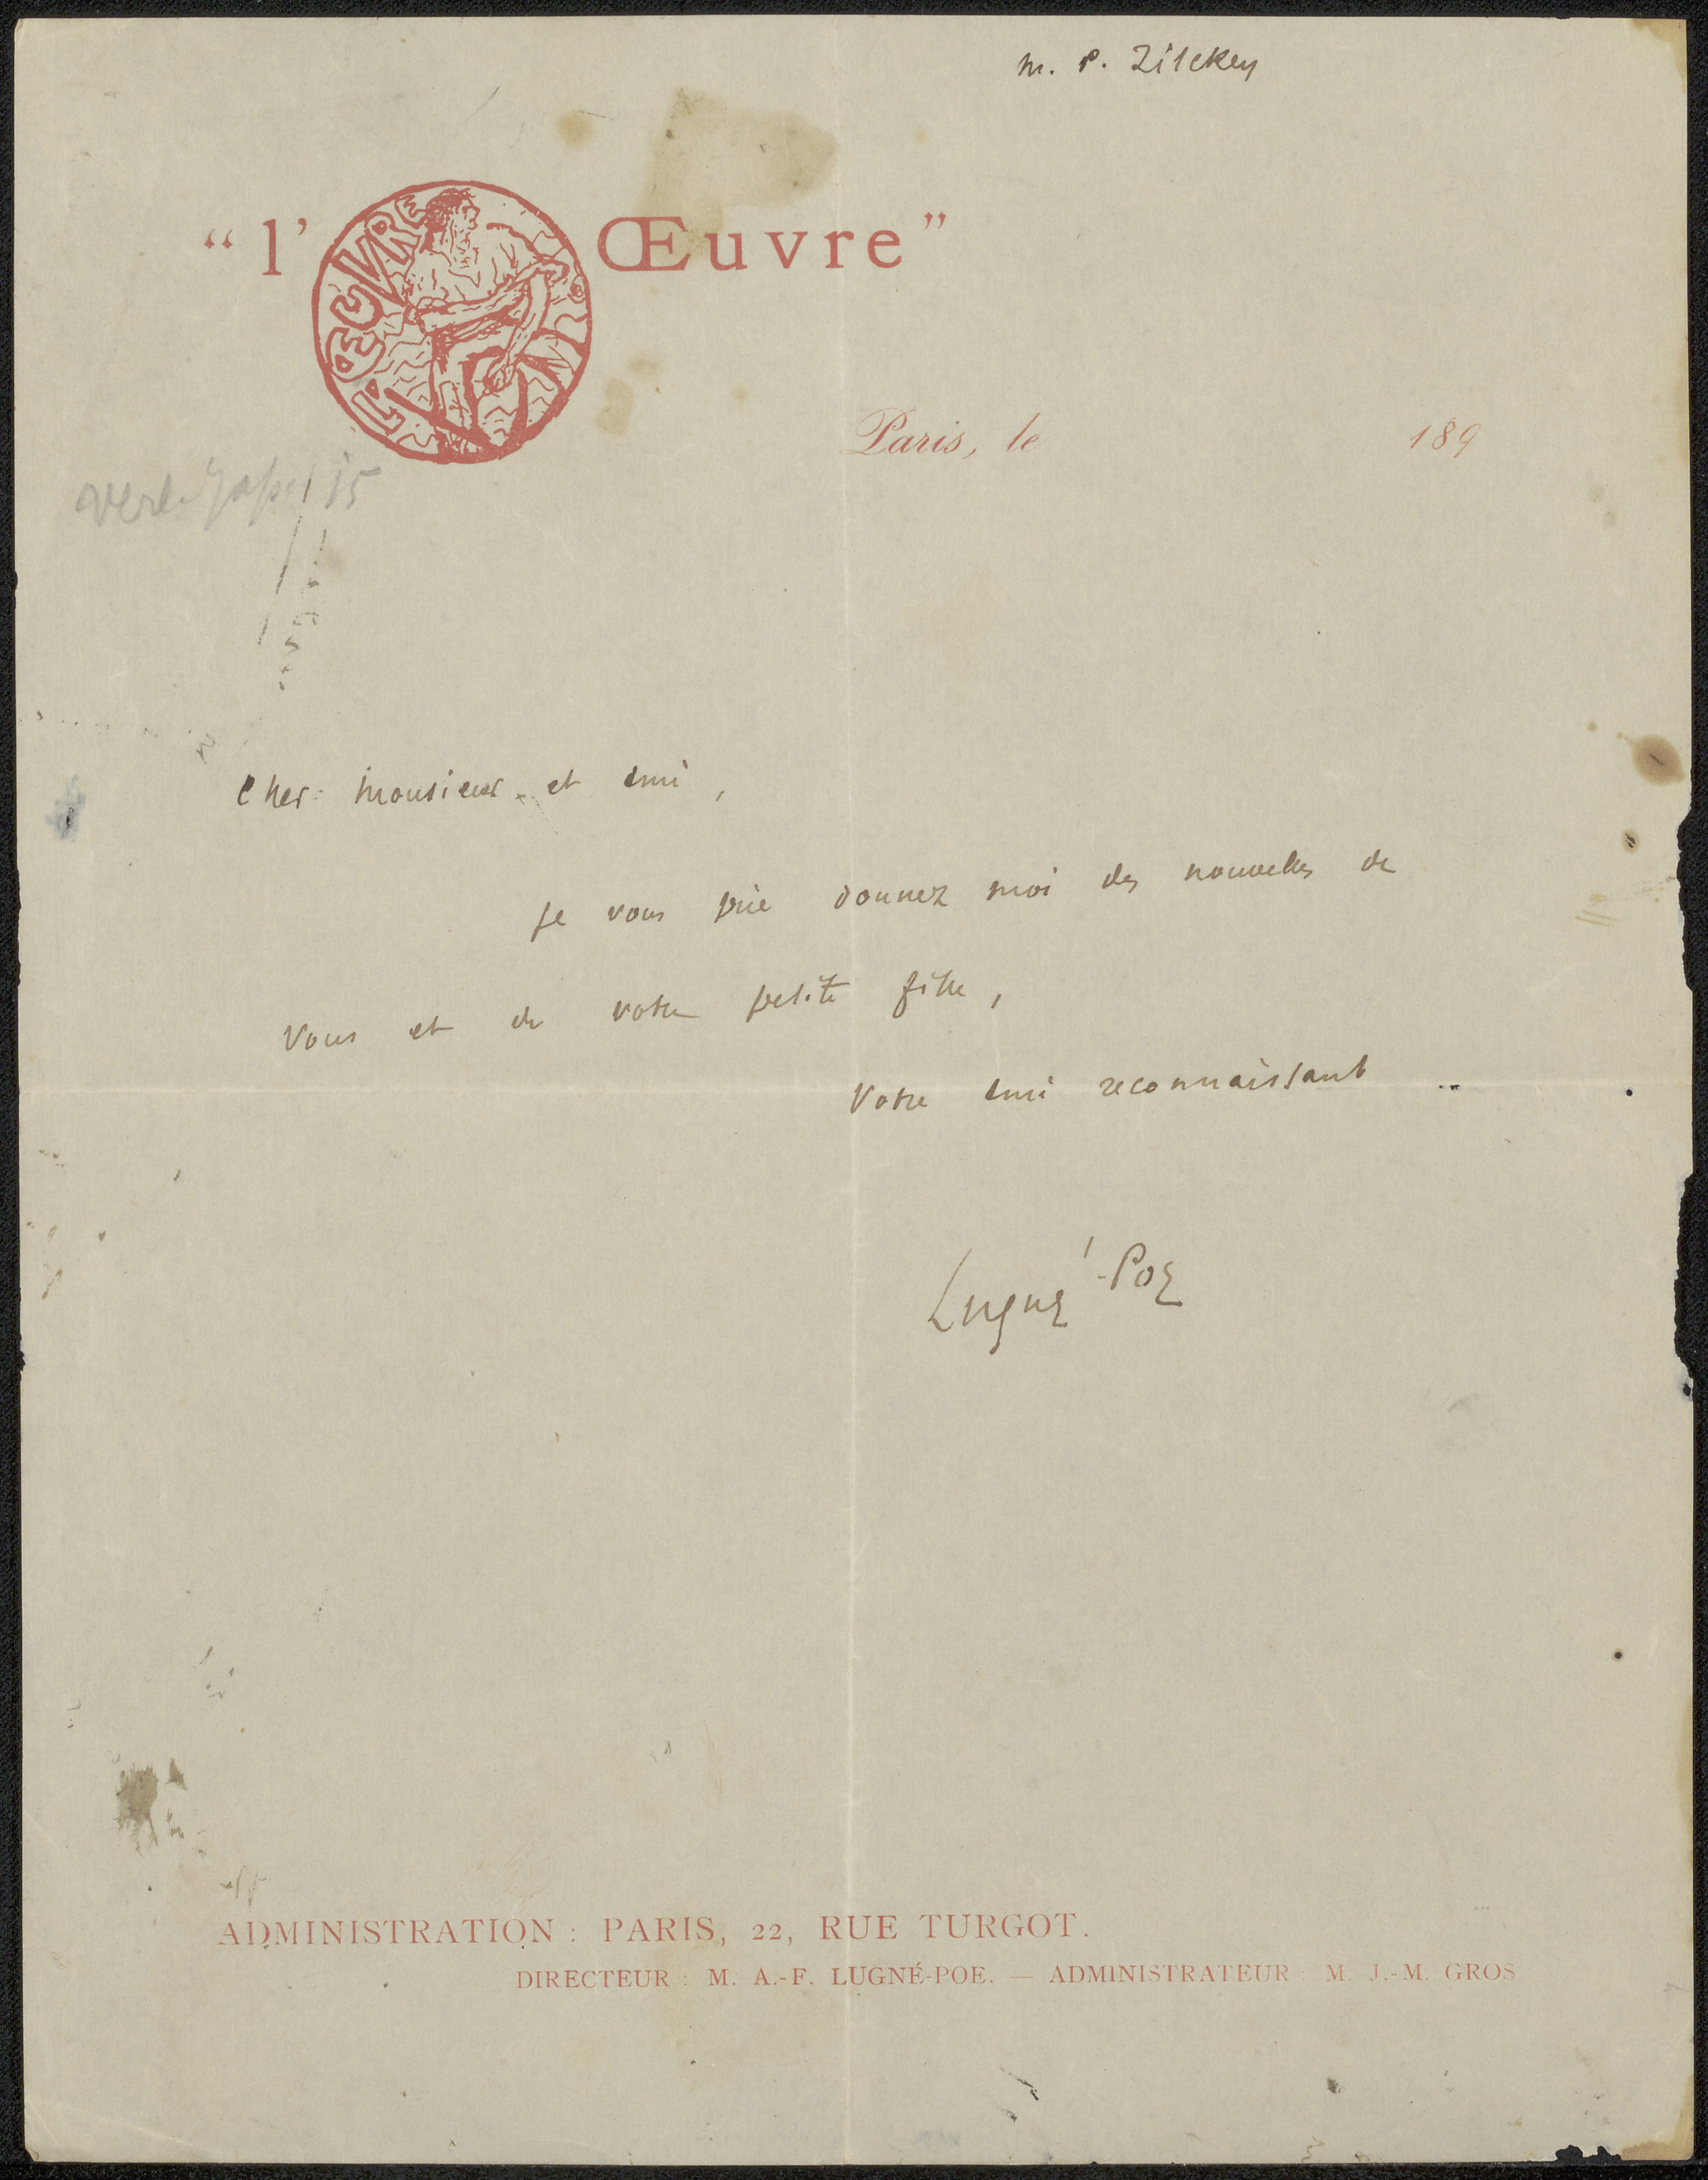 M. P. Zilcken
"l'Œuvre"
L'ŒUVRE
Paris, le 189
15
Cher Monsieur et ami,
Je vous prie donnez moi des nouvelles de
vous et de votre petite fille,
Votre ami reconnaissant
Lugné-Poe
ADMINISTRATION : PARIS, 22, RUE TURGOT.
DIRECTEUR : M. A.-F. LUGNÉ-POE. — ADMINISTRATEUR : M. J.-M. GROS